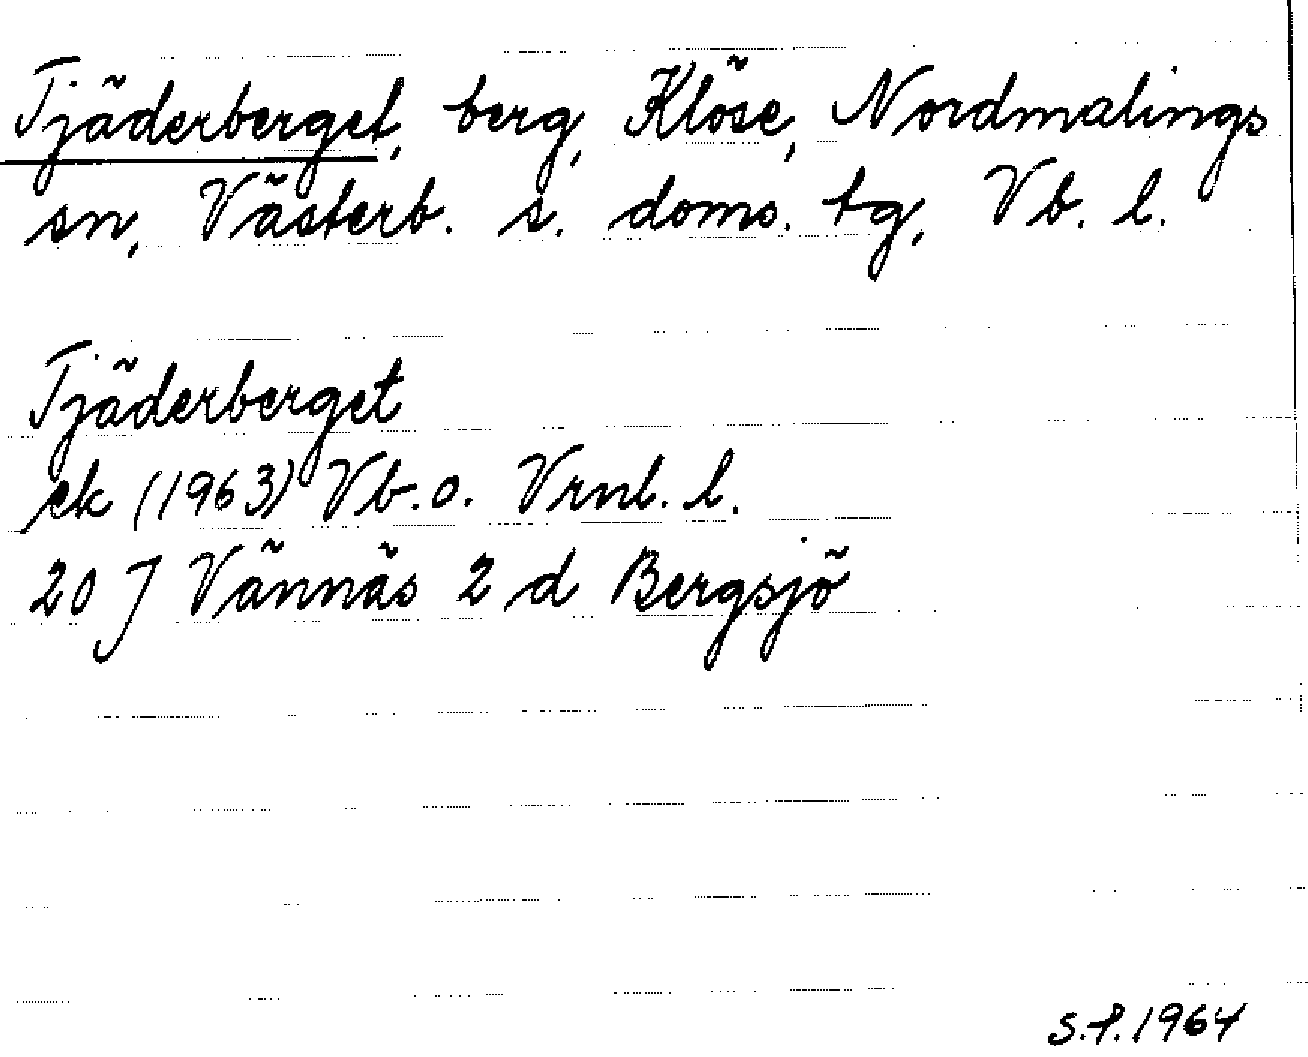 Tjäderberget, berg, Klöse, Nordmalings
sn, Västerb. s. doms. tg, Vb. l.
Tjäderberget
ek (1963) Vb. o. Vrnl. l.
20 J Vännäs 2 d Bergsjö
S.P. 1964